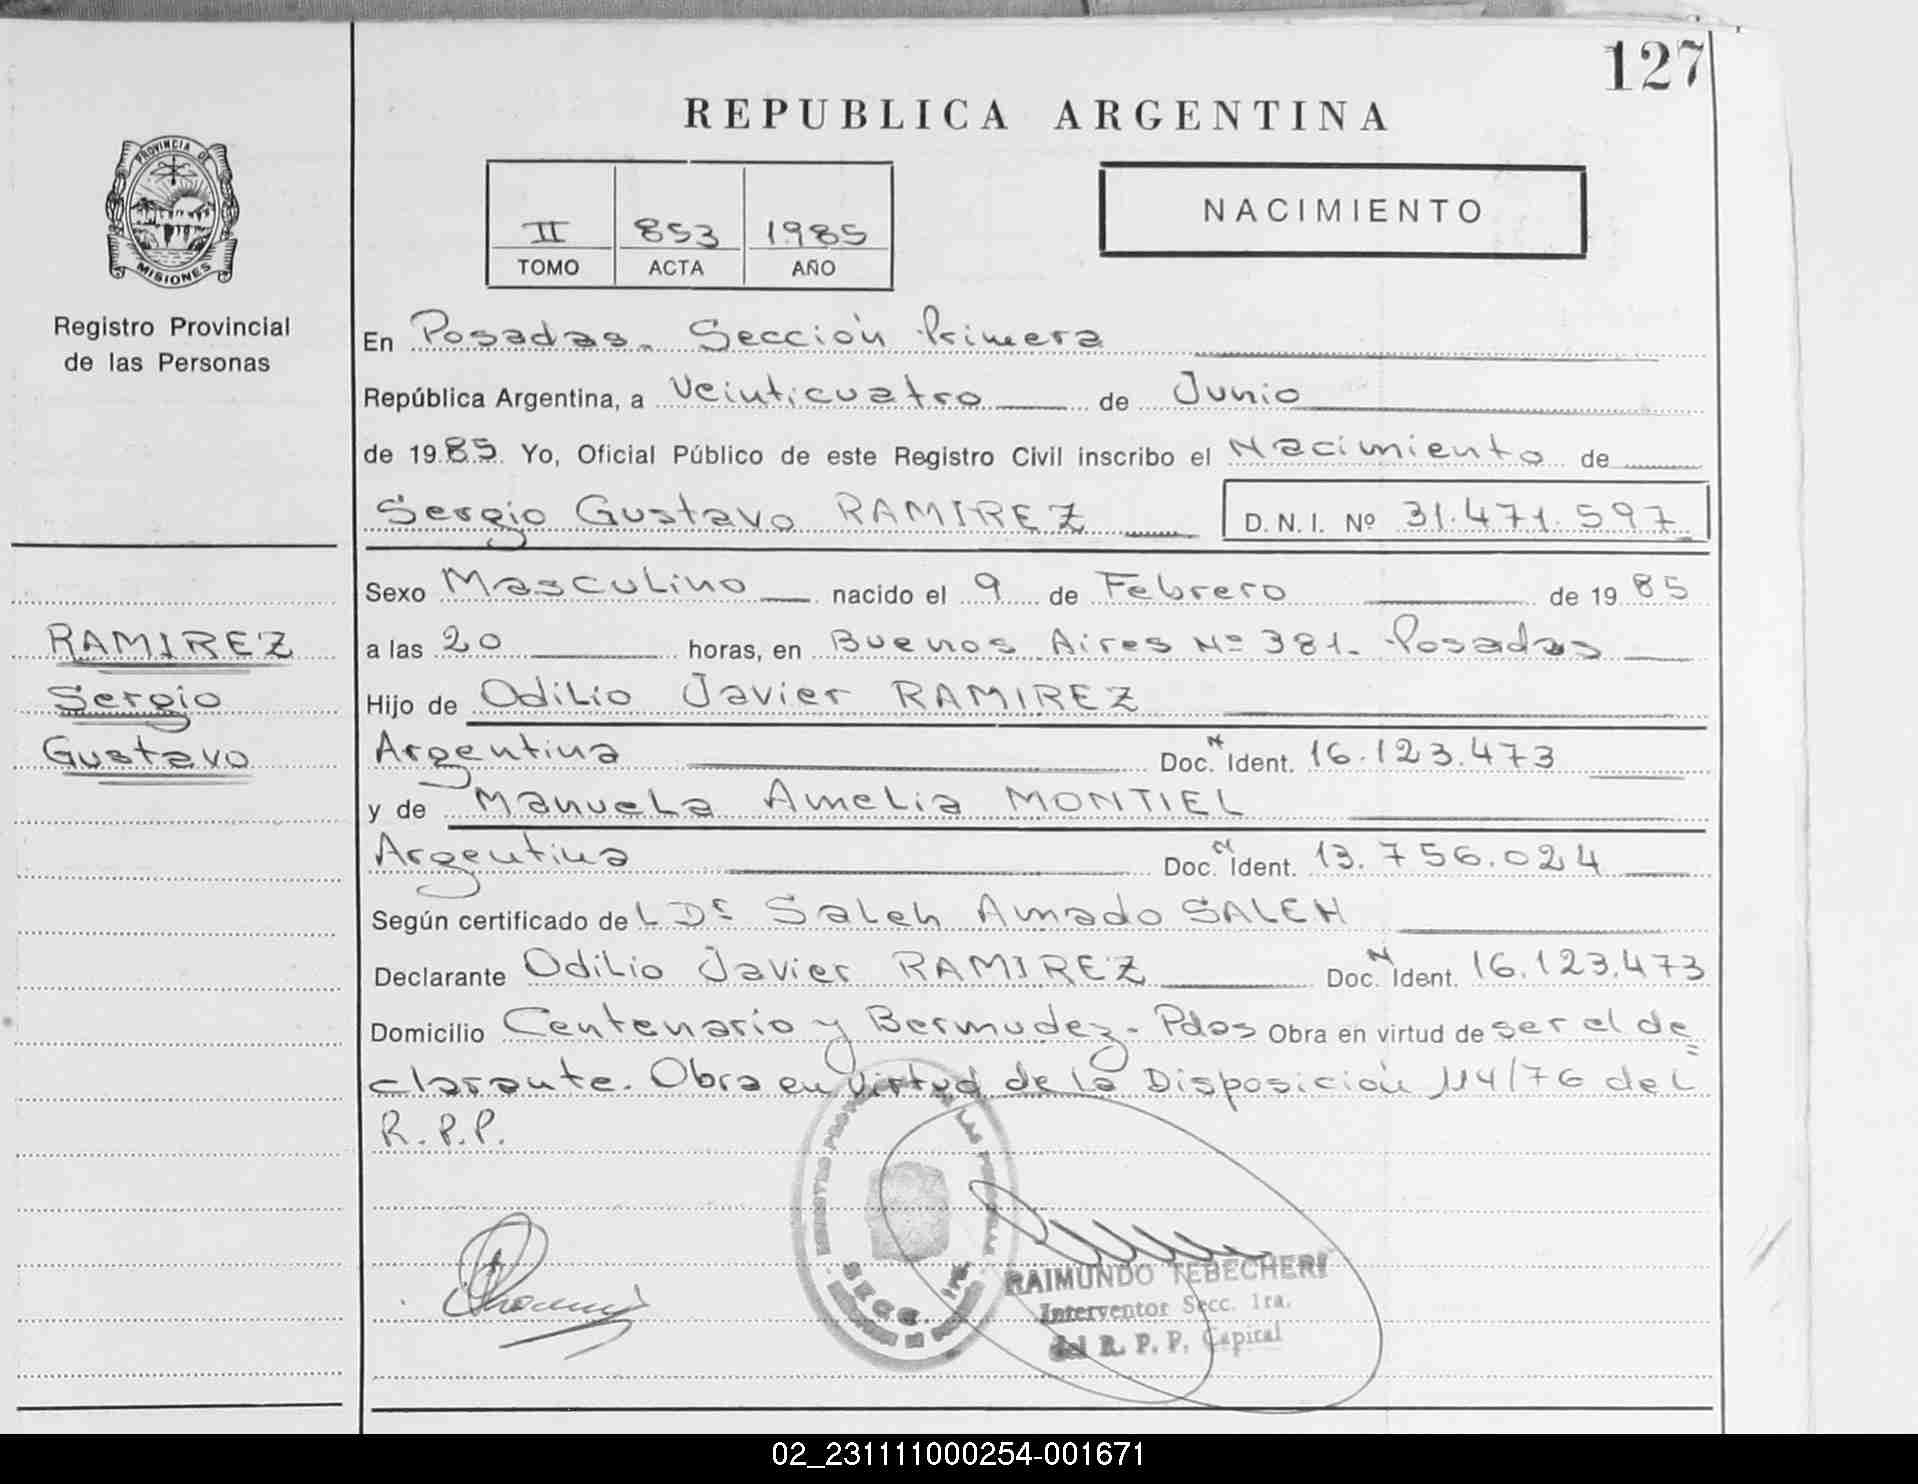 127
REPUBLICA ARGENTINA
PROVINCIA DE
MISIONES
Registro Provincial
de las Personas
II 853 1985
TOMO ACTA AÑO
NACIMIENTO
En Posadas. Sección Primera
República Argentina, a Veinticuatro de Junio
de 1985 Yo, Oficial Público de este Registro Civil inscribo el Nacimiento de
Sergio Gustavo RAMIREZ D. N. I. Nº 31.471.597
Sexo Masculino nacido el 9 de Febrero de 1985
RAMIREZ
Sergio
Gustavo
a las 20 horas, en Buenos Aires Nº 381. Posadas
Hijo de Odilio Javier RAMIREZ
Argentina Doc. N Ident. 16.123.473
y de Manuela Amelia MONTIEL
Argentina Doc. N Ident. 13.756.024
Según certificado de L Dr Saleh Amado SALEH
Declarante Odilio Javier RAMIREZ Doc. N Ident. 16.123.473
Domicilio Centenario y Bermudez - Pdas Obra en virtud de ser el de=
clarante. Obra en virtud de la Disposición 114/76 del
R.P.P.
SECC. 1ra.
RAIMUNDO TEBECHERI
Interventor Secc. 1ra.
del R. P. P. Capital
02_231111000254-001671